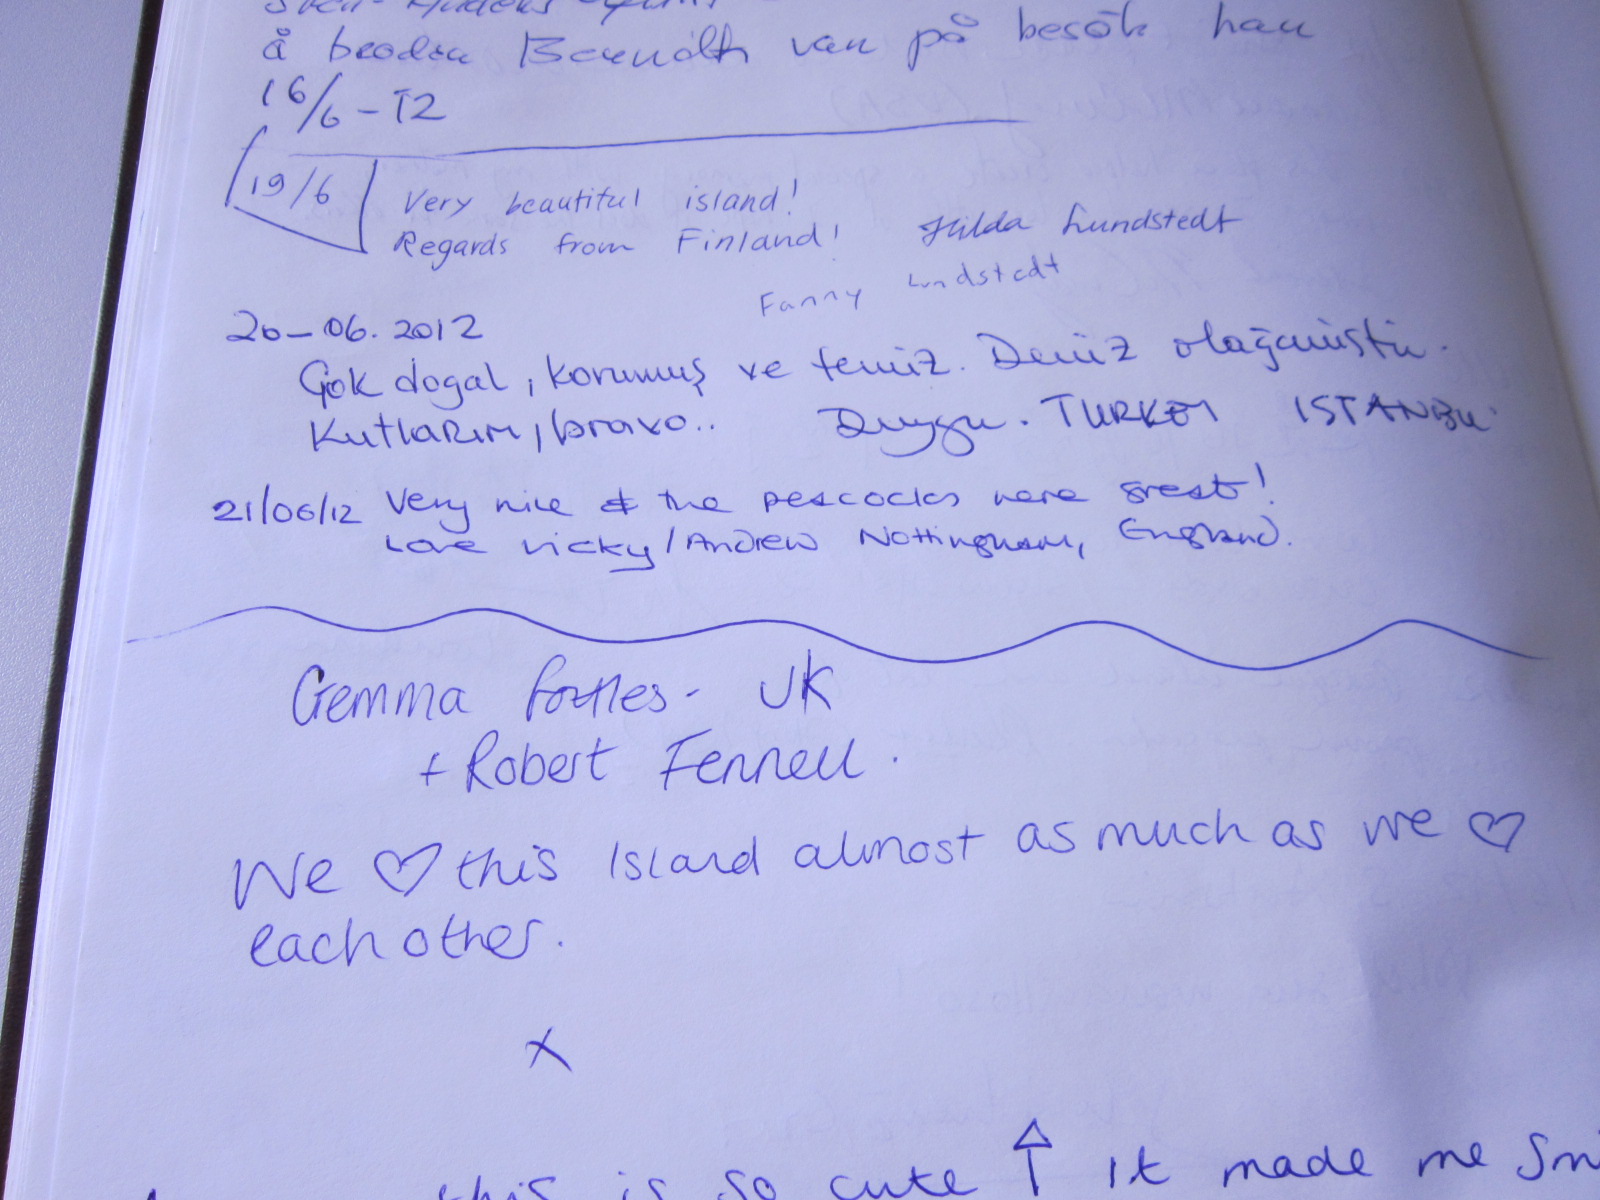 å brodern Berndth var på besök han
16/6-12
19/6 Very beautiful island!
Regards from Finland! Hilda Lundstedt
Fanny Lundstedt
20-06.2012
Çok doğal, korunmuş ve temiz. Deniz olağanüstü.
Kutlarım, bravo.. Duygu. TURKEY ISTANBU
21/06/12 Very nice & the peacocks were great!
Love Vicky/Andrew Nottingham, England.
Gemma - UK
+ Robert Fennell.
We ♡ this Island almost as much as we ♡
each other.
X
this is so cute ↑ it made me smi